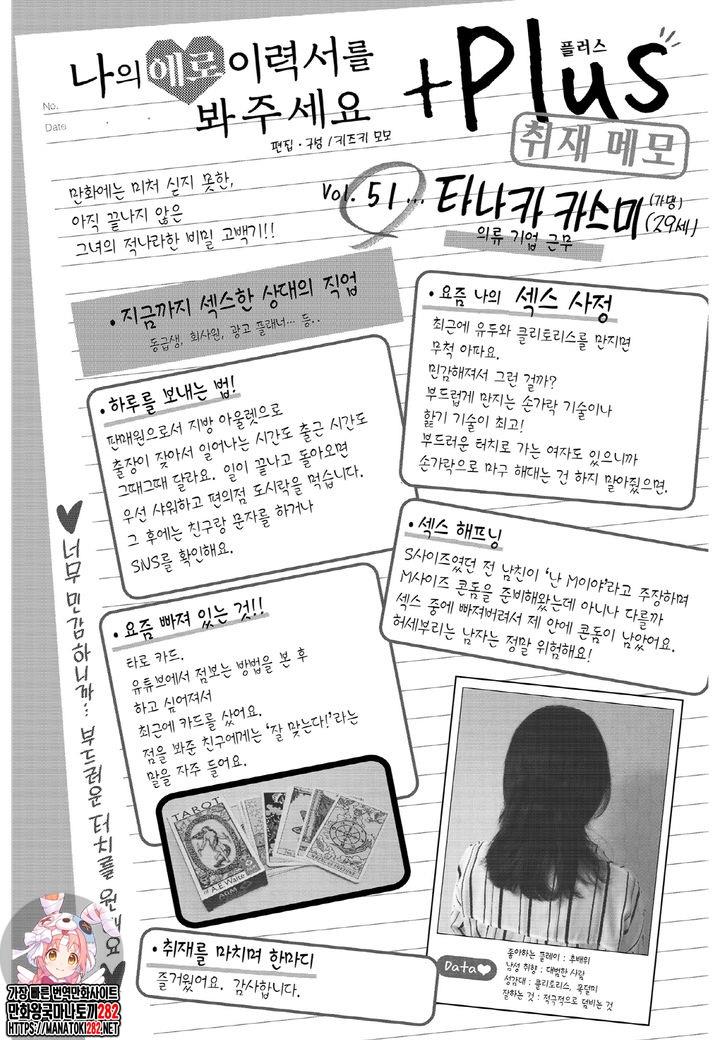 나의 에로 이력서를
봐주세요
+Plus
플러스
취재 메모
편집·구성 / 키즈키 모모
No.
Date
만화에는 미처 싣지 못한,
아직 끝나지 않은
그녀의 적나라한 비밀 고백기!!
Vol. 51... 타나카 카스미 (가명) (29세)
의류 기업 근무
·지금까지 섹스한 상대의 직업
동급생, 회사원, 광고 플래너… 등..
·하루를 보내는 법!
판매원으로서 지방 아울렛으로
출장이 잦아서 일어나는 시간도 출근 시간도
그때그때 달라요. 일이 끝나고 돌아오면
우선 샤워하고 편의점 도시락을 먹습니다.
그 후에는 친구랑 문자를 하거나
SNS를 확인해요.
·요즘 빠져 있는 것!!
타로 카드.
유튜브에서 점보는 방법을 본 후
하고 싶어져서
최근에 카드를 샀어요.
점을 봐준 친구에게는 '잘 맞는다!'라는
말을 자주 들어요.
TAROT
A.E.Waite
·요즘 나의 섹스 사정
최근에 유두와 클리토리스를 만지면
무척 아파요.
민감해져서 그런 걸까?
부드럽게 만지는 손가락 기술이나
핥기 기술이 최고!
부드러운 터치로 가는 여자도 있으니까
손가락으로 마구 해대는 건 하지 말아줬으면.
·섹스 해프닝
S사이즈였던 전 남친이 '난 M이야'라고 주장하며
M사이즈 콘돔을 준비해왔는데 아니나 다를까
섹스 중에 빠져버려서 제 안에 콘돔이 남았어요.
허세부리는 남자는 정말 위험해요!
Data
좋아하는 플레이 : 후배위
남성 취향 : 대범한 사람
성감대 : 클리토리스, 목덜미
잘하는 것 : 적극적으로 덤비는 것
·취재를 마치며 한마디
즐거웠어요. 감사합니다.
너무 민감하니까… 부드러운 터치를 원해요
가장 빠른 번역만화사이트
만화왕국마나토끼282
HTTPS://MANATOKI282.NET